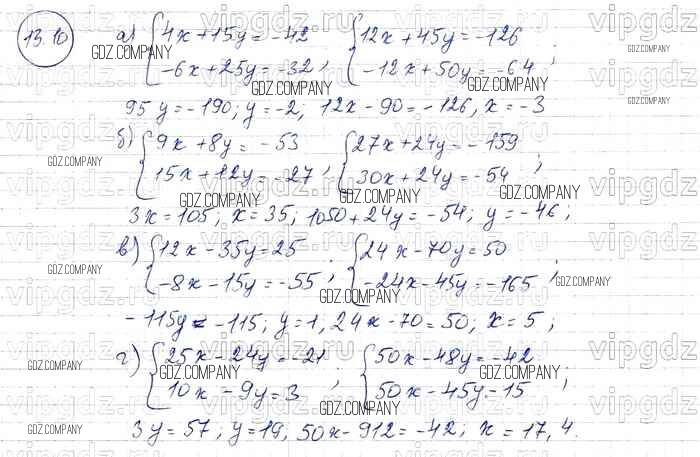 13.10 а) { 4x + 15y = -42 { 12x + 45y = -126
-6x + 25y = -32 , -12x + 50y = -64 ;
95y = -190; y = -2; 12x - 90 = -126, x = -3
б) { 9x + 8y = -53 { 27x + 24y = -159
15x + 12y = -27 , 30x + 24y = -54 ;
3x = 105, x = 35; 1050 + 24y = -54; y = -46;
в) { 12x - 35y = 25 { 24x - 70y = 50
-8x - 15y = -55 ; -24x - 45y = -165 ;
-115y = -115; y = 1, 24x - 70 = 50, x = 5;
г) { 25x - 24y = -21 { 50x - 48y = -42
10x - 9y = 3 ; 50x - 45y = 15 ;
3y = 57; y = 19, 50x - 912 = -42; x = 17,4.
vipgdz.ru
GDZ.COMPANY